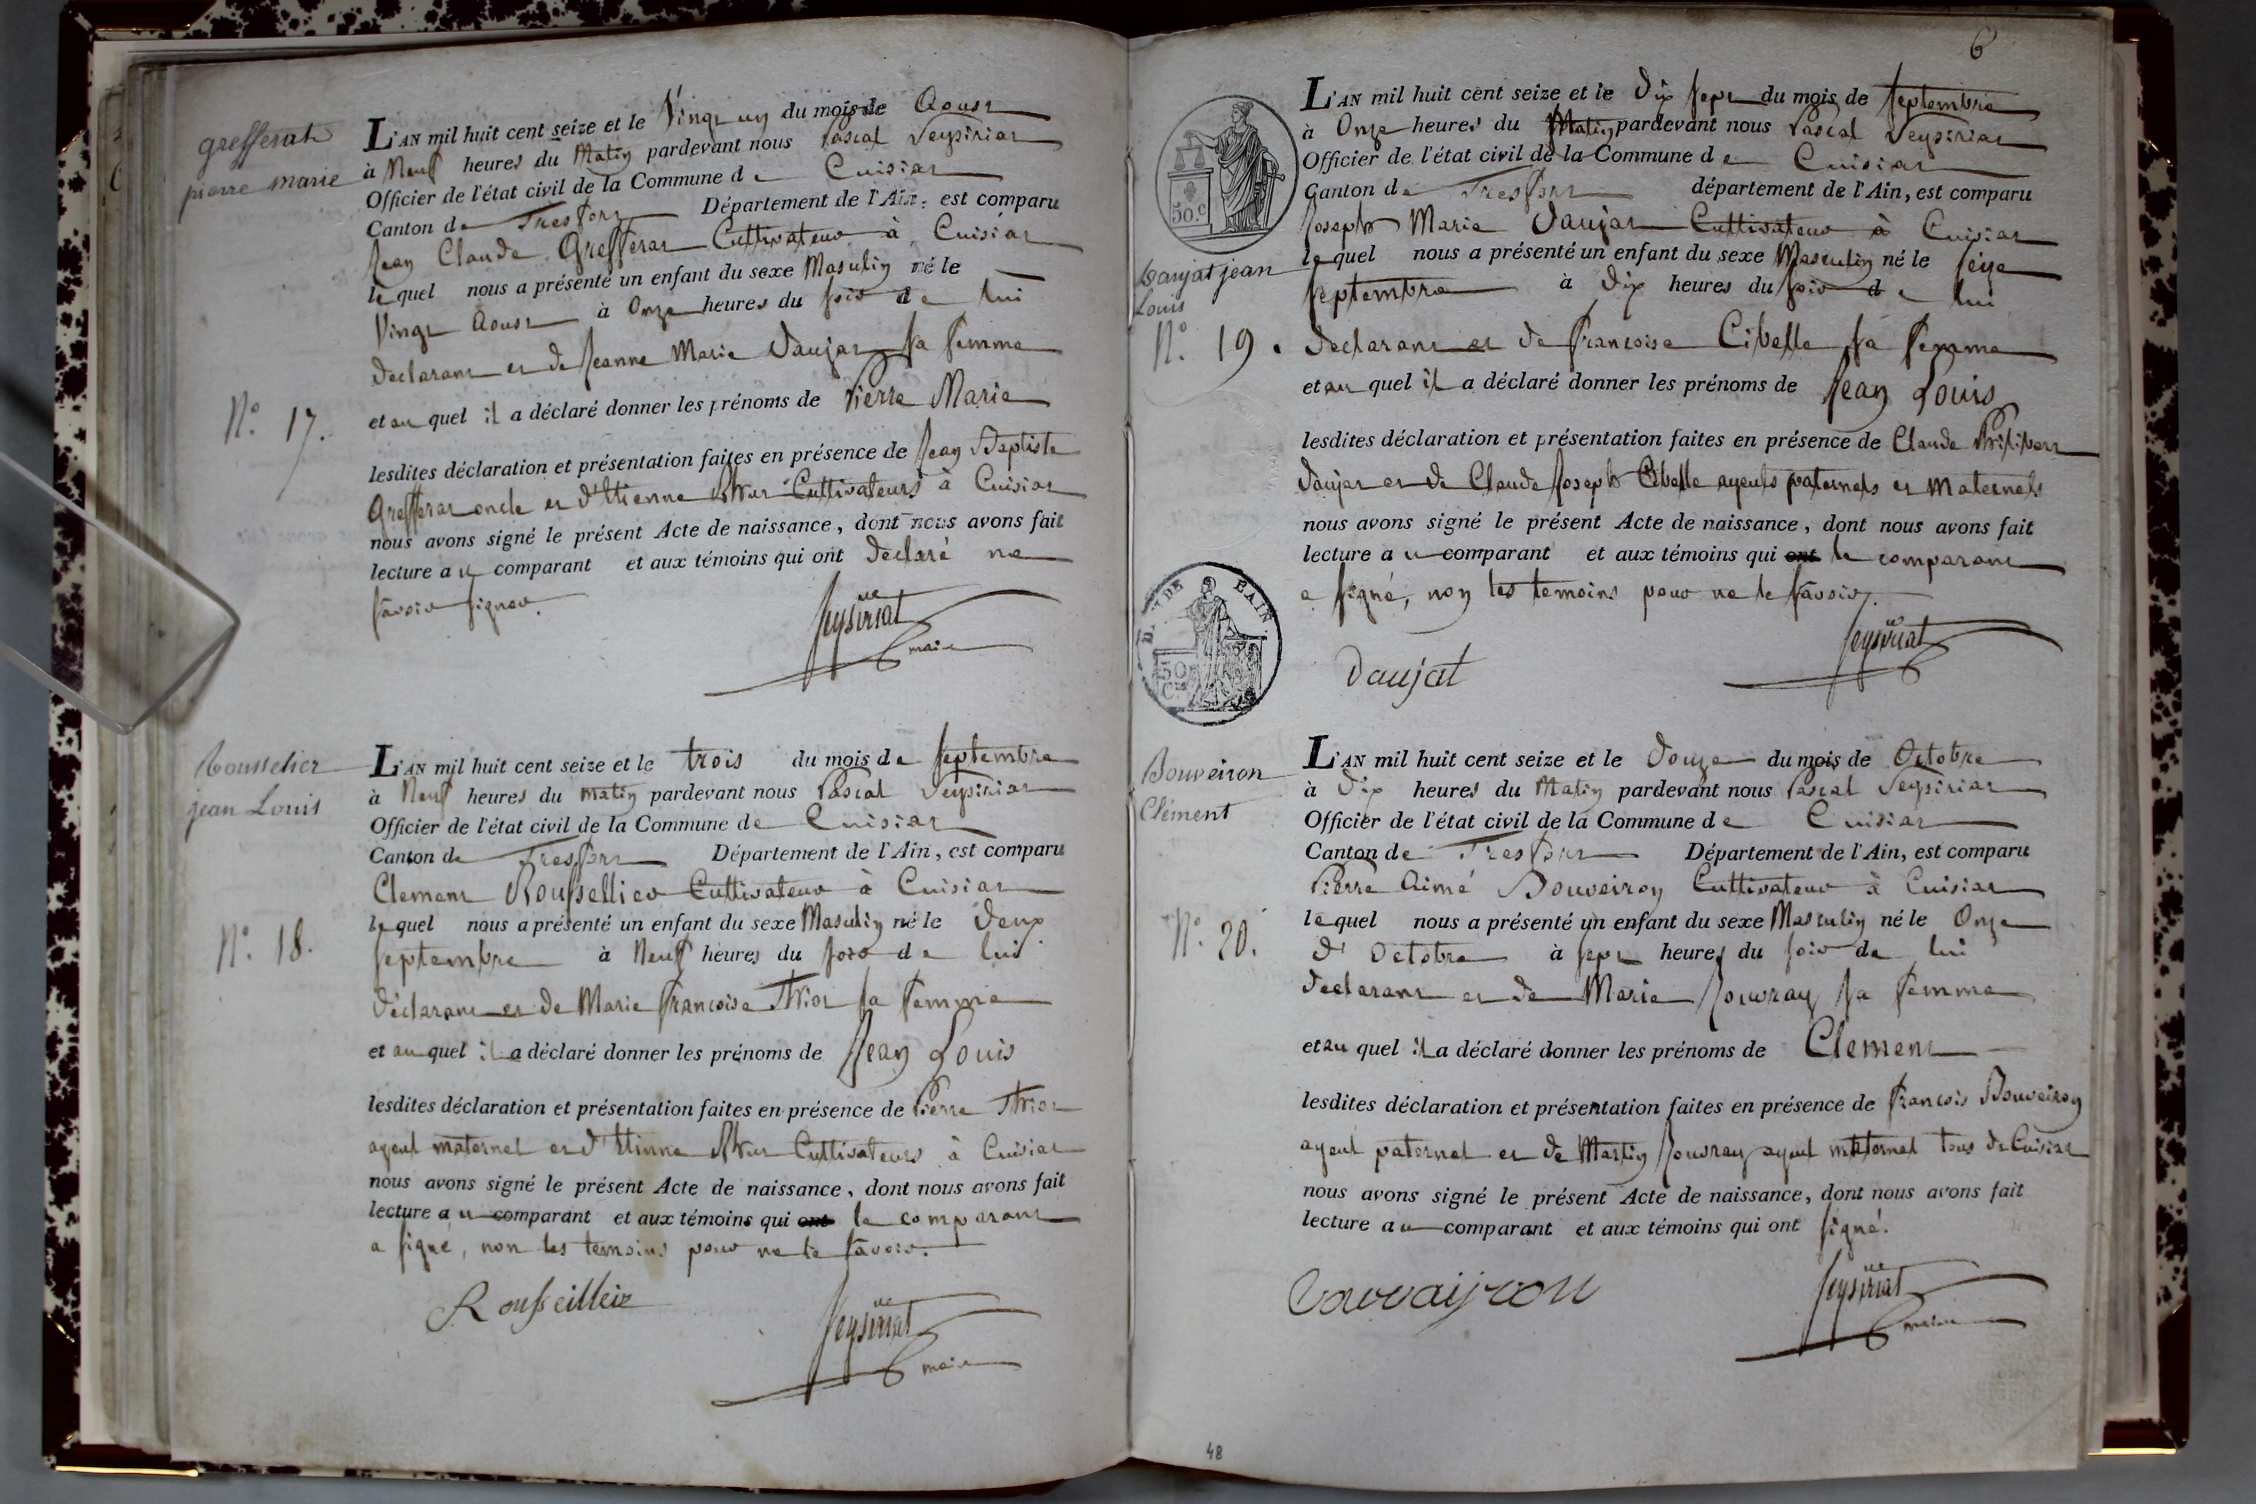 grefferat
pierre marie
L'AN mil huit cent seize et le Vingt un du mois de Aoust
à Neuf heures du Matin pardevant nous Pascal Seysiriat
Officier de l'état civil de la Commune de Cuisiat
Canton de Treffort Département de l'Ain, est comparu
Jean Claude Grefferat Cultivateur à Cuisiat
lequel nous a présenté un enfant du sexe Masculin né le
Vingt Aoust à Onze heures du soir de lui
declarant et de Jeanne Marie Daujat sa femme
N.° 17.
et au quel il a déclaré donner les prénoms de Pierre Marie
lesdites déclaration et présentation faites en présence de Jean Baptiste
Grefferat oncle et d'Etienne Cultivateurs à Cuisiat
nous avons signé le présent Acte de naissance, dont nous avons fait
lecture au comparant et aux témoins qui ont declaré ne
savoir signer.
Seysiriat
maire
Rousselier
jean Louis
L'AN mil huit cent seize et le trois du mois de septembre
à Neuf heures du matin pardevant nous Pascal Seysiriat
Officier de l'état civil de la Commune de Cuisiat
Canton de Treffort Département de l'Ain, est comparu
Clement Roussellier Cultivateur à Cuisiat
lequel nous a présenté un enfant du sexe Masculin né le Deux
N.° 18.
septembre à Neuf heures du soir de lui
déclarant et de Marie francoise sa femme
et au quel il a déclaré donner les prénoms de Jean Louis
lesdites déclaration et présentation faites en présence de Pierre
ayeul maternel et d'Etienne Cultivateurs à Cuisiat
nous avons signé le présent Acte de naissance, dont nous avons fait
lecture au comparant et aux témoins qui ont le comparant
a signé, non les temoins pour ne le savoir.
Rousseilleir
Seysiriat
maire
6
L'AN mil huit cent seize et le Dix sept du mois de septembre
à Onze heures du Matin pardevant nous Pascal Seysiriat
Officier de l'état civil de la Commune de Cuisiat
Canton de Treffort département de l'Ain, est comparu
50.c
Joseph Marie Daujat Cultivateur à Cuisiat
lequel nous a présenté un enfant du sexe Masculin né le seize
Daujat jean
Louis
septembre à Dix heures du soir de lui
N.° 19.
declarant et de francoise Cibelle sa femme
et au quel il a déclaré donner les prénoms de Jean Louis
lesdites déclaration et présentation faites en présence de Claude Philibert
Daujat et de Claude Joseph Cibelle ayeuls paternels et maternels
nous avons signé le présent Acte de naissance, dont nous avons fait
lecture au comparant et aux témoins qui ont le comparant
a signé, non les temoins pour ne le savoir.
50
Ces
Daujat
Seysiriat
Bouveiron
Clément
L'AN mil huit cent seize et le Douze du mois de Octobre
à Dix heures du Matin pardevant nous Pascal Seysiriat
Officier de l'état civil de la Commune de Cuisiat
Canton de Treffort Département de l'Ain, est comparu
Pierre Aimé Bouveiron Cultivateur à Cuisiat
lequel nous a présenté un enfant du sexe Masculin né le Onze
N.° 20.
d'Octobre à sept heures du soir de lui
declarant et de Marie Jouvray sa femme
et au quel il a déclaré donner les prénoms de Clement
lesdites déclaration et présentation faites en présence de francois Bouveiron
ayeul paternel et de Martin Jouvray ayeul maternel tous de Cuisiat
nous avons signé le présent Acte de naissance, dont nous avons fait
lecture au comparant et aux témoins qui ont signé.
Bouvaiyron
Seysiriat
maire
48